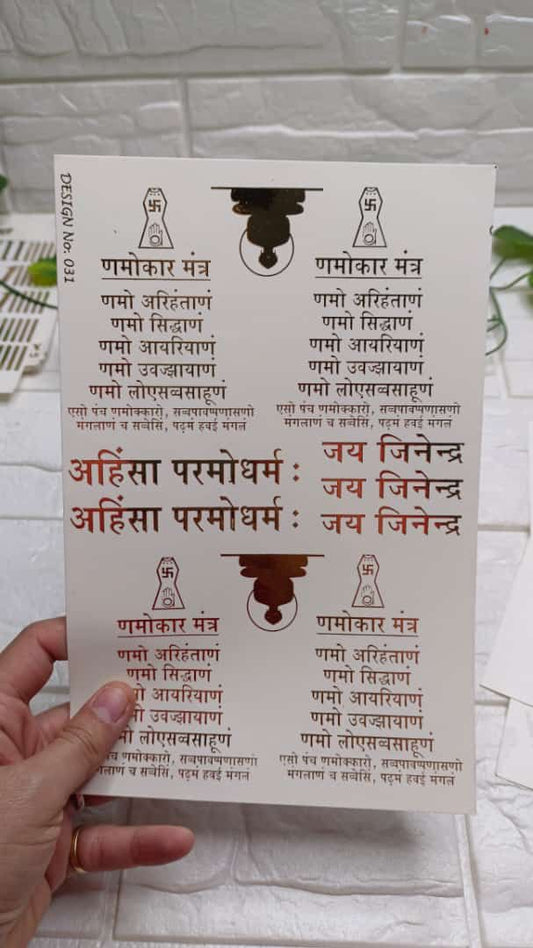 DESIGN No: 031
णमोकार मंत्र
णमो अरिहंताणं
णमो सिद्धाणं
णमो आयरियाणं
णमो उवज्झायाणं
णमो लोएसव्वसाहूणं
एसो पंच णमोक्कारो, सव्वपावप्पणासणो
मंगलाणं च सव्वेसिं, पढ्मं हवई मंगलं
णमोकार मंत्र
णमो अरिहंताणं
णमो सिद्धाणं
णमो आयरियाणं
णमो उवज्झायाणं
णमो लोएसव्वसाहूणं
एसो पंच णमोक्कारो, सव्वपावप्पणासणो
मंगलाणं च सव्वेसिं, पढ्मं हवई मंगलं
अहिंसा परमोधर्म :
अहिंसा परमोधर्म :
जय जिनेन्द्र
जय जिनेन्द्र
जय जिनेन्द्र
णमोकार मंत्र
णमो अरिहंताणं
णमो सिद्धाणं
आयरियाणं
उवज्झायाणं
लोएसव्वसाहूणं
पंच णमोक्कारो, सव्वपावप्पणासणो
मंगलाणं च सव्वेसिं, पढ्मं हवई मंगलं
णमोकार मंत्र
णमो अरिहंताणं
णमो सिद्धाणं
णमो आयरियाणं
णमो उवज्झायाणं
णमो लोएसव्वसाहूणं
एसो पंच णमोक्कारो, सव्वपावप्पणासणो
मंगलाणं च सव्वेसिं, पढ्मं हवई मंगलं